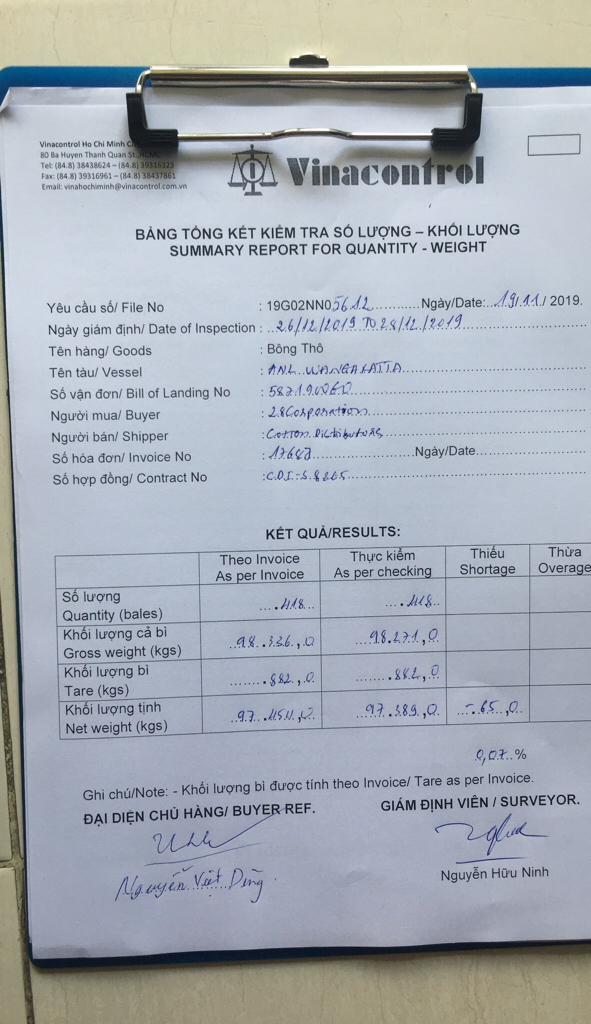 Vinacontrol Ho Chi Minh
80 Ba Huyen Thanh Quan St, HCMC
Tel: (84.8) 38438624 – (84.8) 39316323
Fax: (84.8) 39316961 – (84.8) 38437861
Email: vinahochiminh@vinacontrol.com.vn
Vinacontrol
BẢNG TỔNG KẾT KIỂM TRA SỐ LƯỢNG – KHỐI LƯỢNG
SUMMARY REPORT FOR QUANTITY - WEIGHT
Yêu cầu số/ File No : 19G02NN05612 Ngày/Date: 19/11/ 2019.
Ngày giám định/ Date of Inspection : 26/12/2019 TO 28/12/2019
Tên hàng/ Goods : Bông Thô
Tên tàu/ Vessel : ANL WANGARATTA
Số vận đơn/ Bill of Landing No :
Người mua/ Buyer : 28 Corporation
Người bán/ Shipper : Cotton Distributors
Số hóa đơn/ Invoice No : Ngày/Date
Số hợp đồng/ Contract No : C.D.I-S.8265
KẾT QUẢ/RESULTS:
Theo Invoice Thực kiểm Thiếu Thừa
As per Invoice As per checking Shortage Overage
Số lượng
Quantity (bales) 418 418
Khối lượng cả bì
Gross weight (kgs) 98.336,0 98.271,0
Khối lượng bì
Tare (kgs) 882,0 882,0
Khối lượng tịnh
Net weight (kgs) 97.454,0 97.389,0 -65,0
0,07 %
Ghi chú/Note: - Khối lượng bì được tính theo Invoice/ Tare as per Invoice.
ĐẠI DIỆN CHỦ HÀNG/ BUYER REF. GIÁM ĐỊNH VIÊN / SURVEYOR.
Nguyễn Việt Dũng
Nguyễn Hữu Ninh